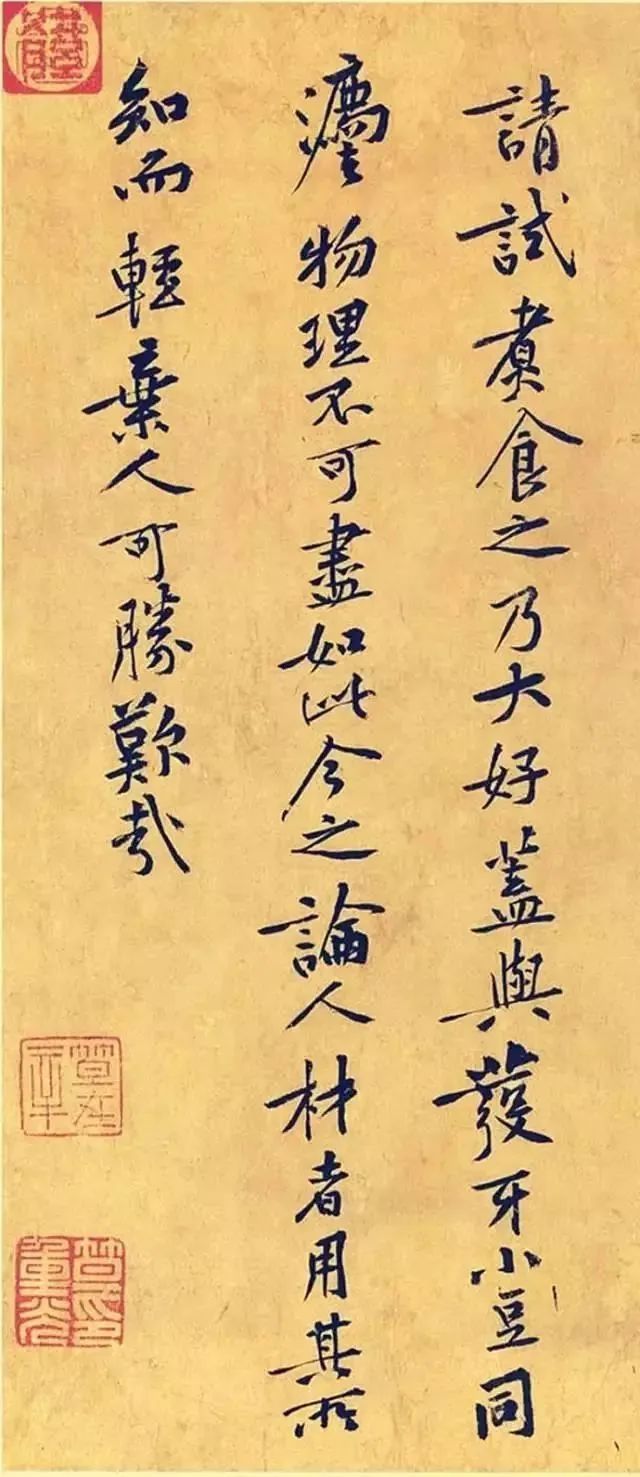 請試煮食之乃大好蓋與發牙小豆同
灋物理不可盡如此今之論人材者用其所
知而輕棄人可勝歎哉
笪重光印